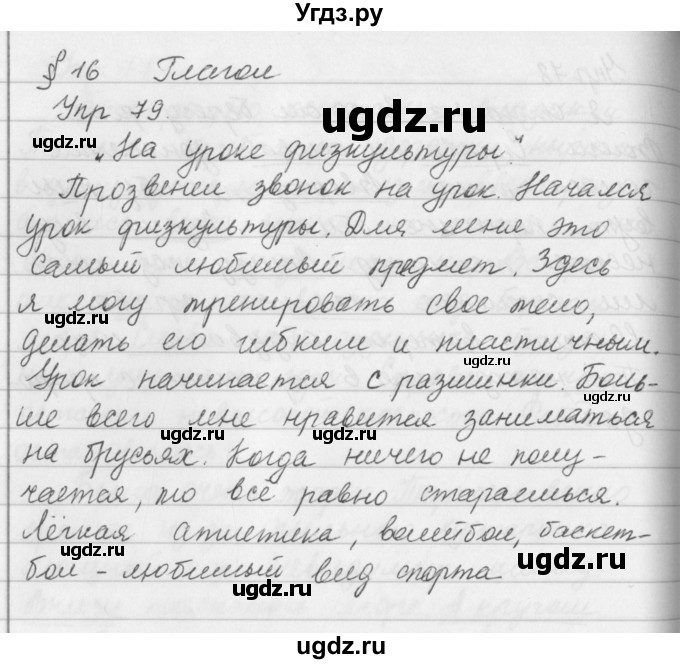 Угдз.ру
§ 16 Глагол
Упр 79.
ugdz.ru
ugdz.ru
"На уроке физкультуры."
ugdz.ru
Прозвенел звонок на урок. Начался
урок физкультуры. Для меня это
самый любимый предмет. Здесь
я могу тренировать свое тело,
ugdz.ru
делать его гибким и пластичным.
ugdz.ru
Урок начинается с разминки. Боль-
ше всего мне нравится заниматься
ugdz.ru
ugdz.ru
на брусьях. Когда ничего не полу-
чается, то все равно стараешься.
Лёгкая атлетика, волейбол, баскет-
ugdz.ru
ugdz.ru
бол - любимый вид спорта
ugdz.ru